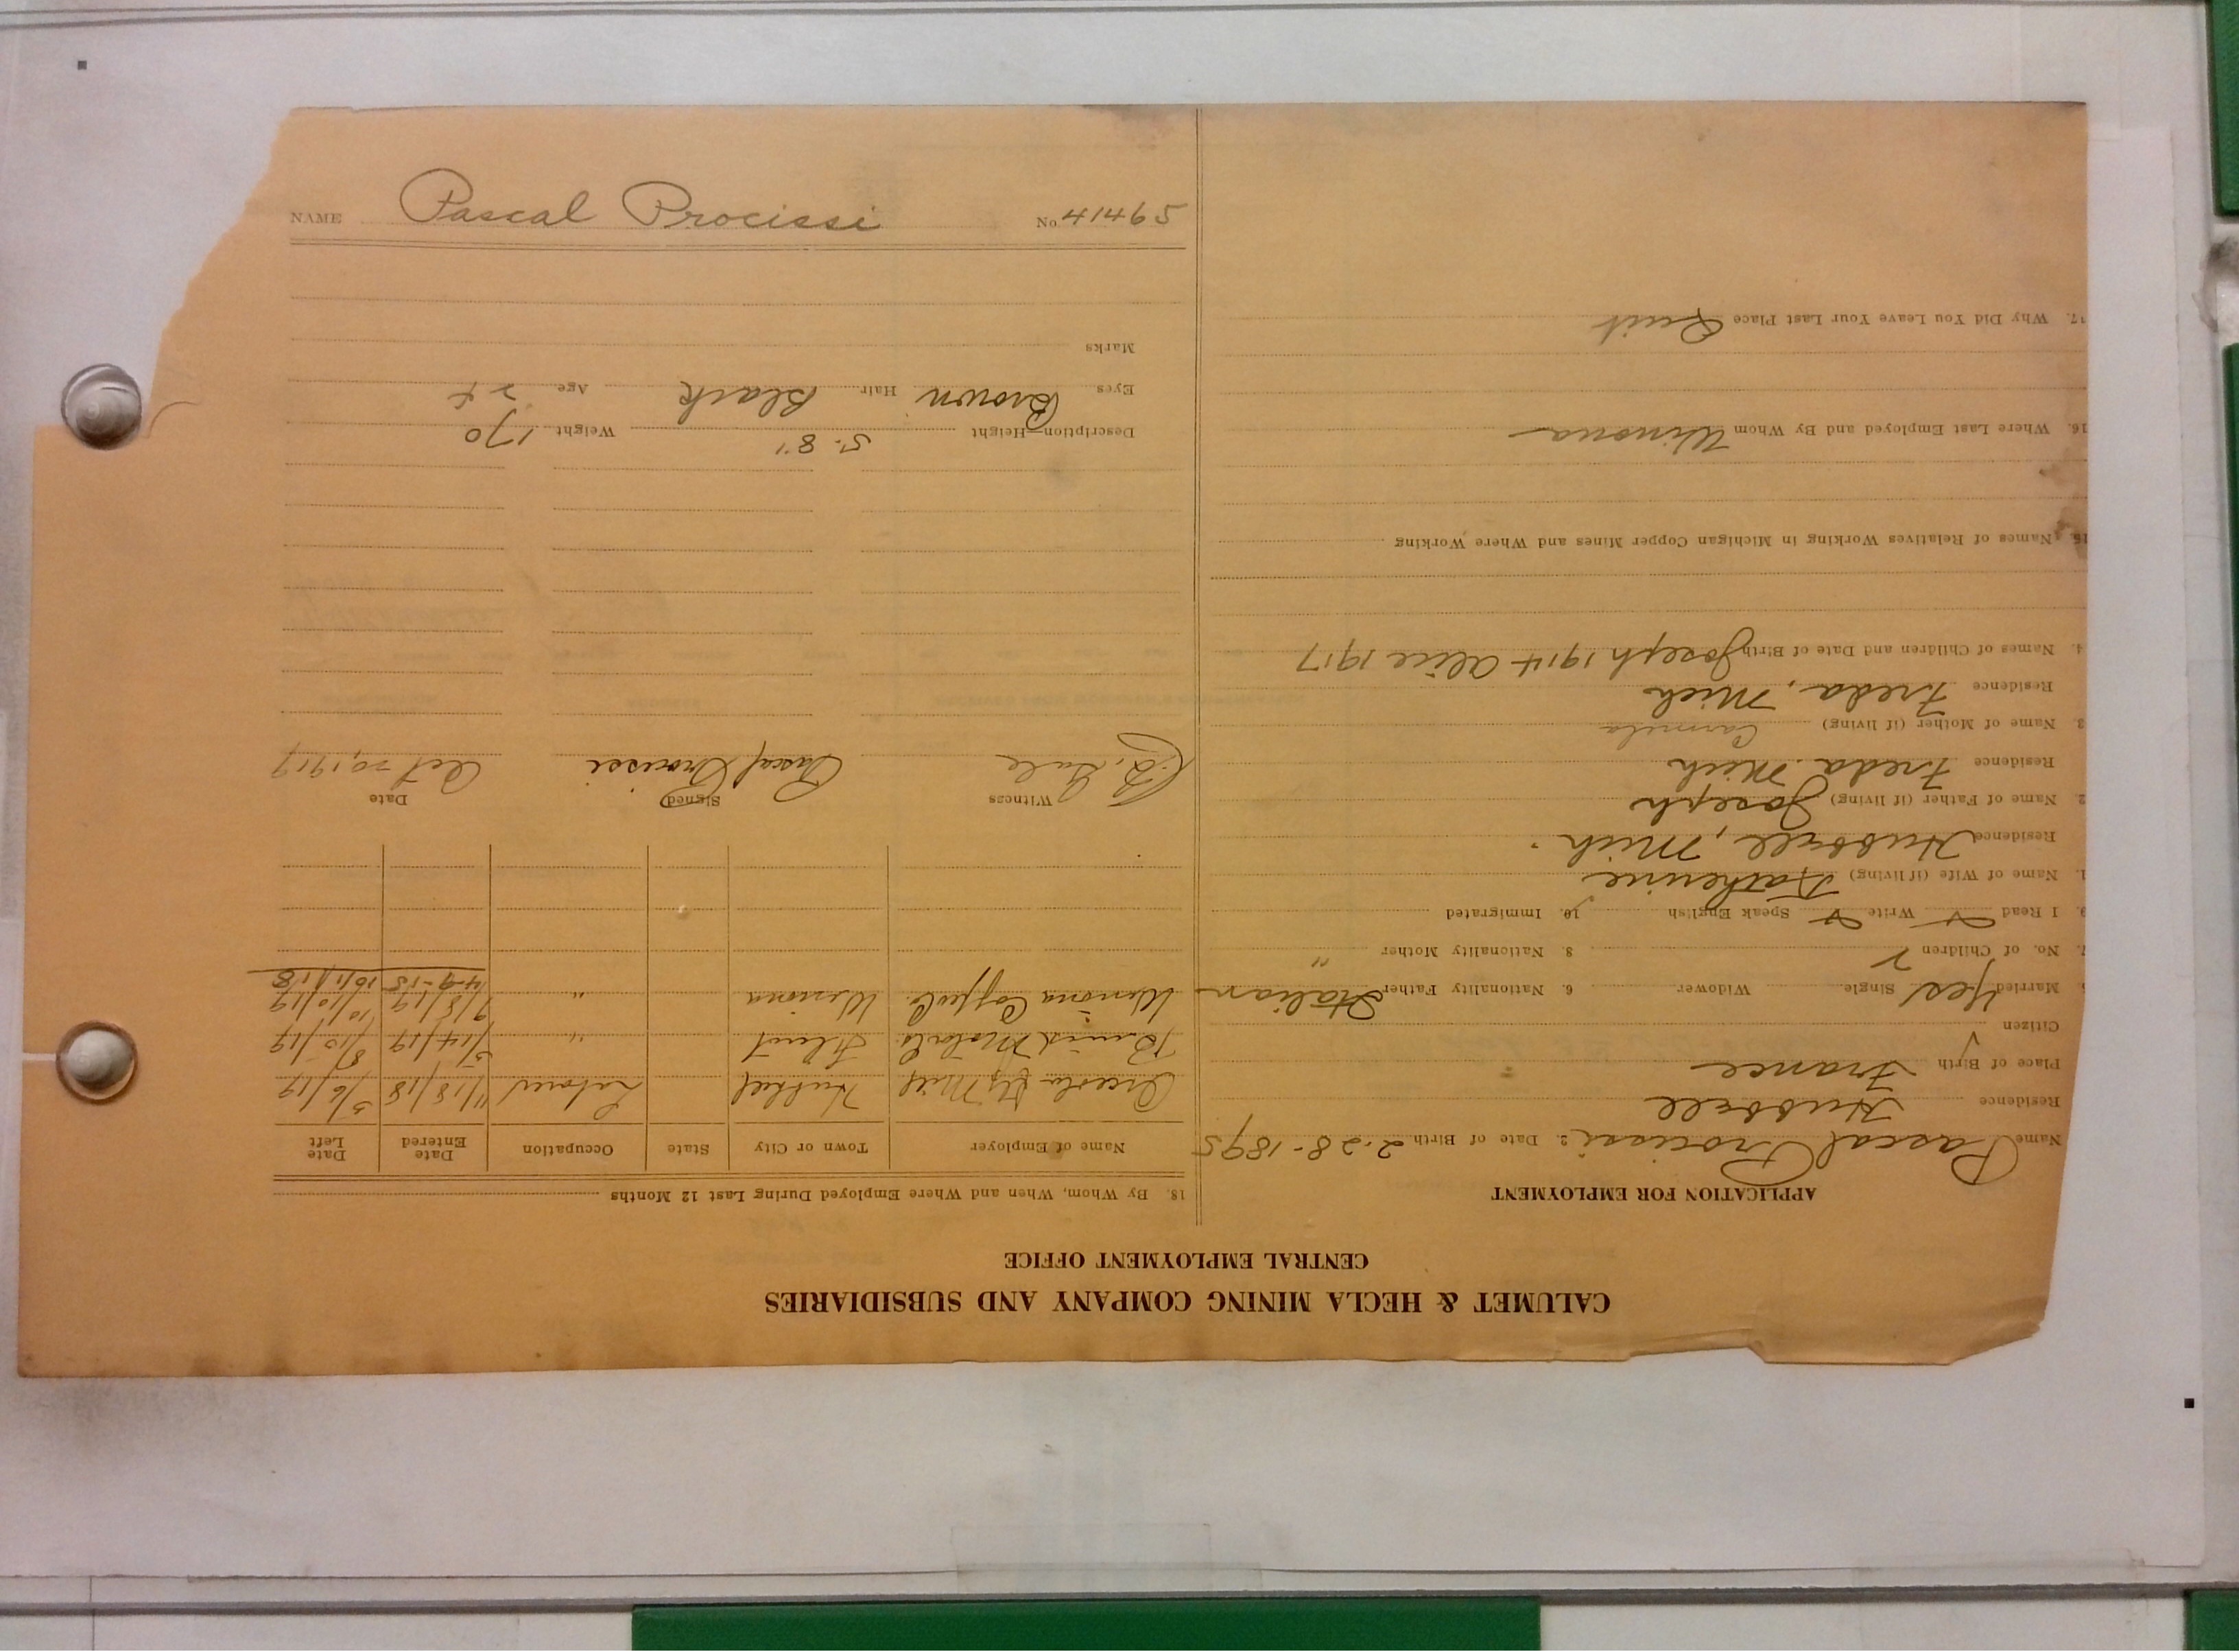 CALUMET & HECLA MINING COMPANY AND SUBSIDIARIES
CENTRAL EMPLOYMENT OFFICE
APPLICATION FOR EMPLOYMENT
Name Pascal Procissi 2. Date of Birth 2-28-1895
Residence Hubbell
Place of Birth France
Citizen
Married Yes Single Widower 6. Nationality Father Italian
7. No. of Children 2 8. Nationality Mother "
9. I Read Write Speak English 10. Immigrated
1. Name of Wife (if living) Katherine
Residence Hubbell, Mich.
2. Name of Father (if living) Joseph
Residence Freda Mich
3. Name of Mother (if living) Carmela
Residence Freda, Mich
4. Names of Children and Date of Birth Joseph 1914 Alice 1917
15. Names of Relatives Working in Michigan Copper Mines and Where Working
16. Where Last Employed and By Whom Winona
17. Why Did You Leave Your Last Place Quit
18. By Whom, When and Where Employed During Last 12 Months
Name of Employer Town or City State Occupation Date Entered Date Left
Mill Hubbell Laborer 11/18/18 5/6/19
Buick Motor Co. Flint " 5/14/19 8/10/19
Winona Copper Co. Winona " 9/8/19 10/10/19
4-9-18 10/1/18
Witness Signed Date
Pascal Procissi Oct 20, 1919
Description—Height 5-8" Weight 170
Eyes Brown Hair Black Age 24
Marks
NAME Pascal Procissi No. 41465